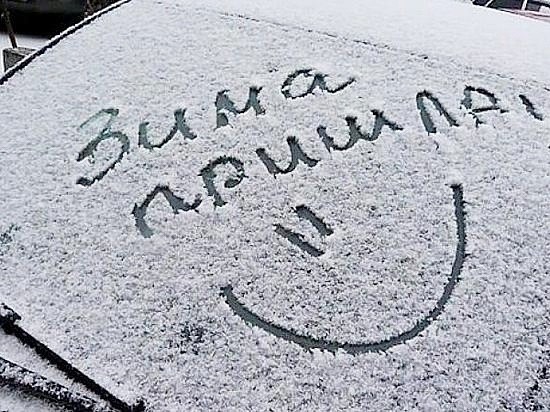 Зима
пришла!